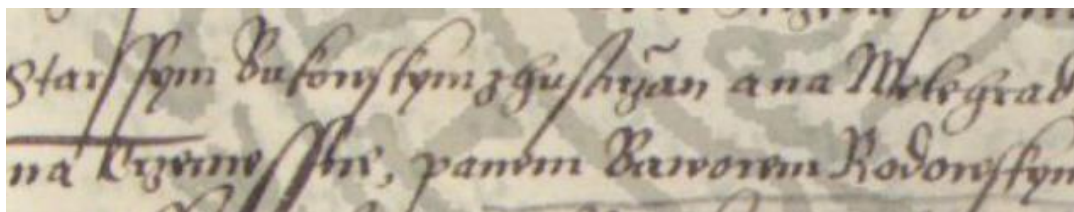 Starssym Bukowskym z hustirzan ana Welehrad
na Trzemessne, panem Baworem Rodowskym